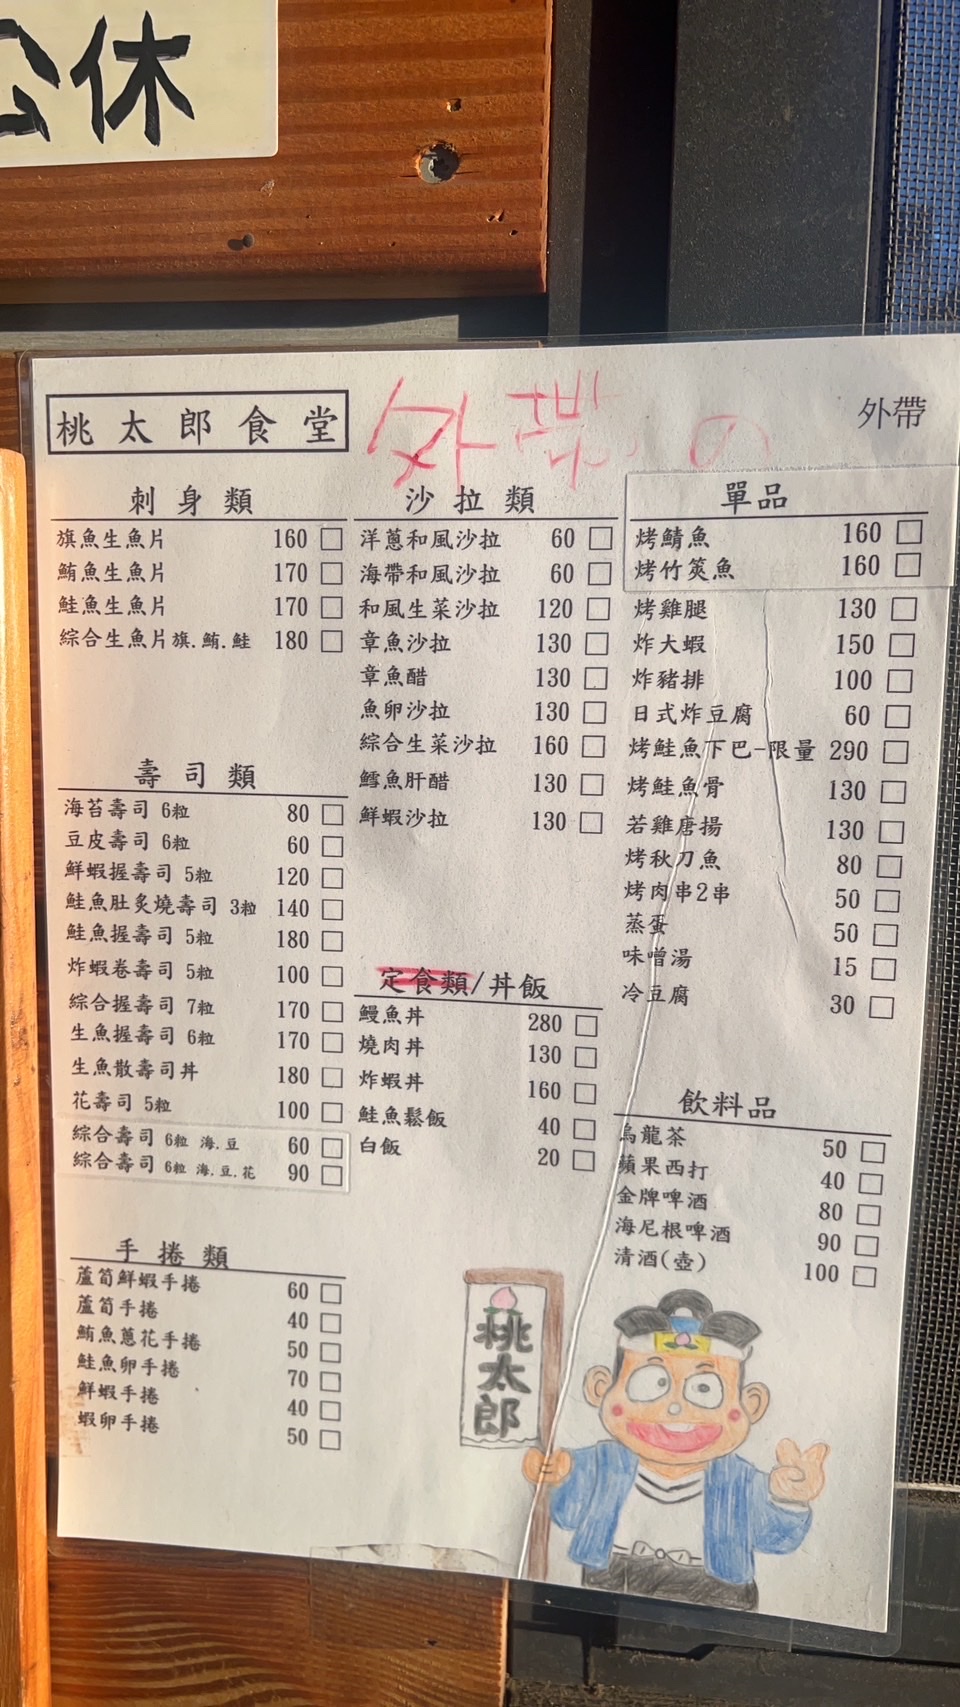 公休
桃太郎食堂
外帶の
外帶
刺身類
旗魚生魚片 160 □
鮪魚生魚片 170 □
鮭魚生魚片 170 □
綜合生魚片旗.鮪.鮭 180 □
壽司類
海苔壽司 6粒 80 □
豆皮壽司 6粒 60 □
鮮蝦握壽司 5粒 120 □
鮭魚肚炙燒壽司 3粒 140 □
鮭魚握壽司 5粒 180 □
炸蝦卷壽司 5粒 100 □
綜合握壽司 7粒 170 □
生魚握壽司 6粒 170 □
生魚散壽司丼 180 □
花壽司 5粒 100 □
綜合壽司 6粒 海.豆 60 □
綜合壽司 6粒 海.豆.花 90 □
手捲類
蘆筍鮮蝦手捲 60 □
蘆筍手捲 40 □
鮪魚蔥花手捲 50 □
鮭魚卵手捲 70 □
鮮蝦手捲 40 □
蝦卵手捲 50 □
沙拉類
洋蔥和風沙拉 60 □
海帶和風沙拉 60 □
和風生菜沙拉 120 □
章魚沙拉 130 □
章魚醋 130 □
魚卵沙拉 130 □
綜合生菜沙拉 160 □
鱈魚肝醋 130 □
鮮蝦沙拉 130 □
定食類/丼飯
鰻魚丼 280 □
燒肉丼 130 □
炸蝦丼 160 □
鮭魚鬆飯 40 □
白飯 20 □
單品
烤鯖魚 160 □
烤竹筴魚 160 □
烤雞腿 130 □
炸大蝦 150 □
炸豬排 100 □
日式炸豆腐 60 □
烤鮭魚下巴-限量 290 □
烤鮭魚骨 130 □
若雞唐揚 130 □
烤秋刀魚 80 □
烤肉串2串 50 □
蒸蛋 50 □
味噌湯 15 □
冷豆腐 30 □
飲料品
烏龍茶 50 □
蘋果西打 40 □
金牌啤酒 80 □
海尼根啤酒 90 □
清酒(壺) 100 □
桃太郎